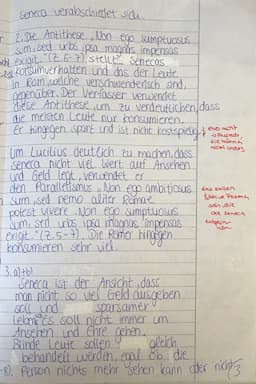 Seneca verabschiedet sich.
2. Die Antithese „Non ego sumptuosus
sum, sed urbs ipsa magnas impensas
exigit." (Z. 6-7) stellt Senecas
Konsumverhalten und das der Leute
in Rom, welche verschwenderisch sind,
gegenüber. Der Verfasser verwendet
diese Antithese, um zu verdeutlichen, dass
die meisten Leute nur konsumieren.
Er hingegen spart und ist nicht kostspielig.
Um Lucilius deutlich zu machen, dass
Seneca nicht viel Wert auf Ansehen
und Geld legt, verwendet er
den Parallelismus „Non ego ambitiosus
sum, sed nemo aliter Romae
potest vivere. Non ego sumptuosus
sum, sed urbs ipsa magnas impensas
exigit." (Z. 5-7). Die Römer hingegen
konsumieren sehr viel.
3. a) + b)
Seneca ist der Ansicht, dass
man nicht so viel Geld ausgeben
soll und sparsamer
Leben. Es soll nicht immer um
Ansehen und Ehre gehen.
Blinde Leute sollen gleich
behandelt werden, egal ob die
Person nichts mehr sehen kann oder nicht.